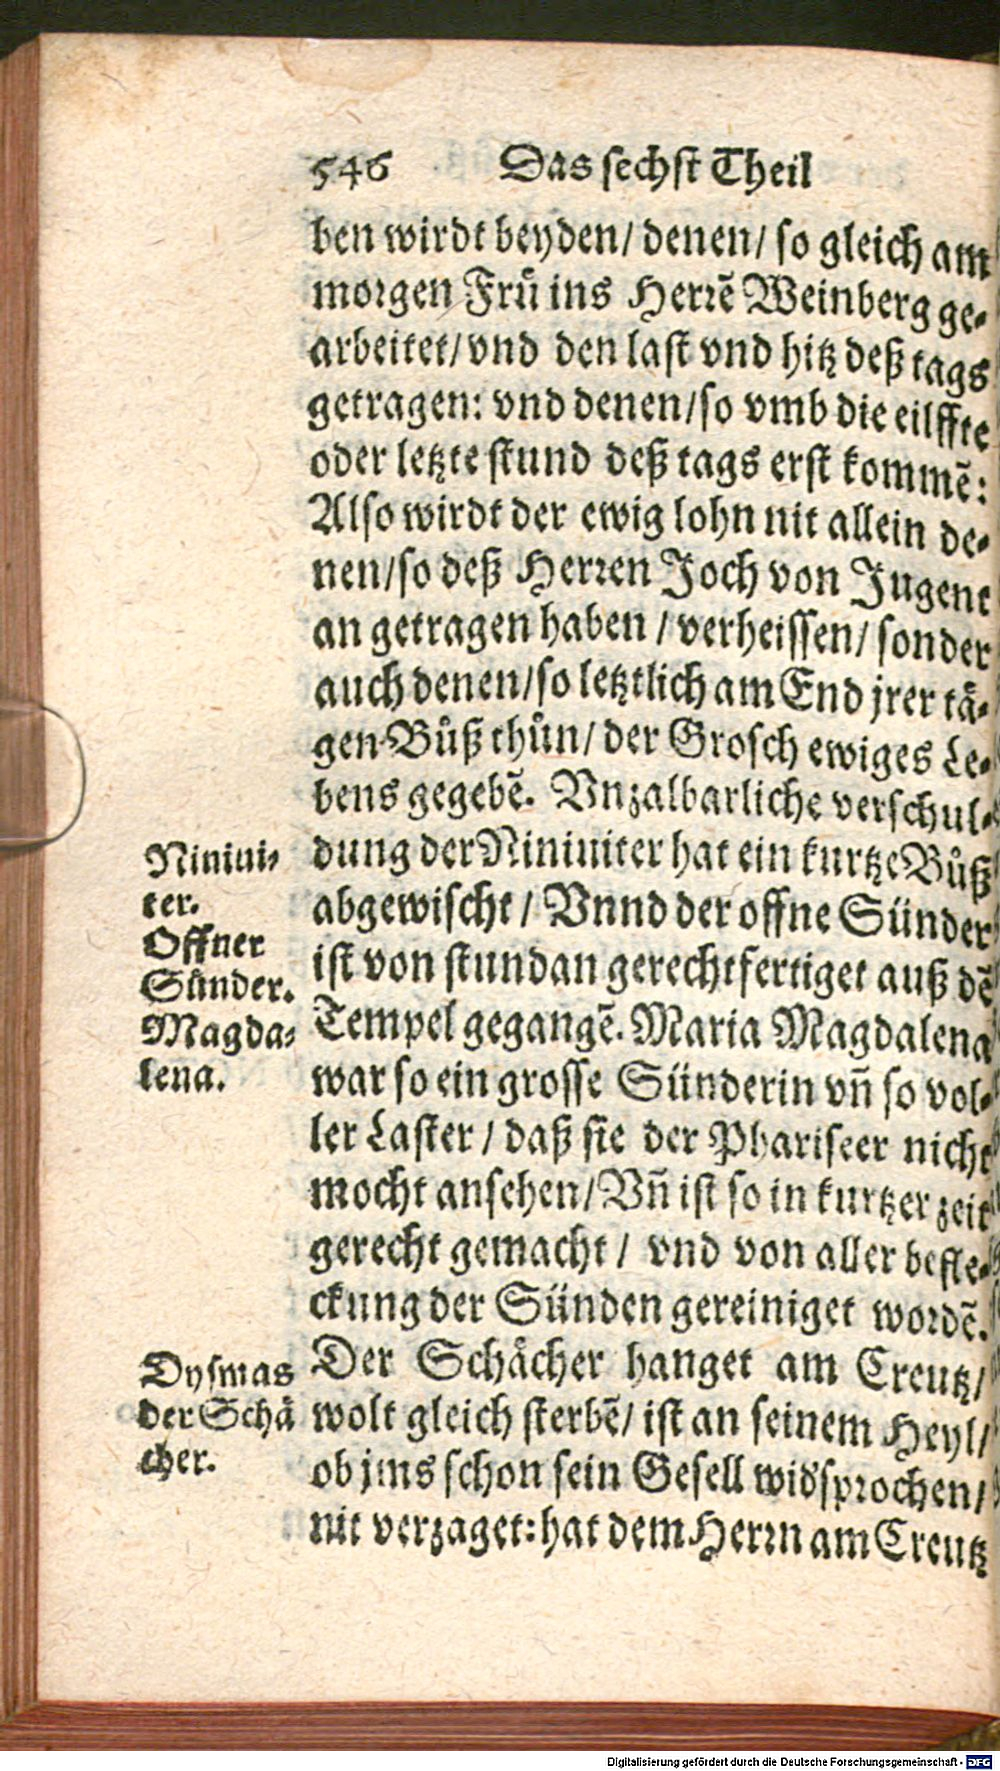 546 Das sechst Theil
ben wirdt beyden/ denen/ so gleich am
morgen Frů ins Herrē Weinberg ge-
arbeitet/ vnd den last vnd hitz deß tags
getragen: vnd denen/ so vmb die eilffte
oder letzte stund deß tags erst kommē:
Also wirdt der ewig lohn nit allein de-
nen/ so deß Herren Joch von Jugent
an getragen haben / verheissen/ sonder
auch denen/ so letztlich am End jrer tä-
gen Bůß thůn/ der Grosch ewiges Le-
bens gegebē. Vnzalbarliche verschul-
dung der Niniuiter hat ein kurtze Bůß
abgewischt / Vnnd der offne Sünder
ist von stundan gerechtfertiget auß dē
Tempel gegangē. Maria Magdalena
war so ein grosse Sünderin vñ so vol-
ler Laster / daß sie der Phariseer nicht
mocht ansehen/ Vñ ist so in kurtzer zeit
gerecht gemacht / vnd von aller befle-
ckung der Sünden gereiniget wordē.
Der Schächer hanget am Creutz/
wolt gleich sterbē/ ist an seinem Heyl/
ob jms schon sein Gesell widsprochen/
nit verzaget: hat dem Herrn am Creutz
Niniui-
ter.
Offner
Sünder.
Magda-
lena.
Dysmas
der Schä
cher.
Digitalisierung gefördert durch die Deutsche Forschungsgemeinschaft - DFG